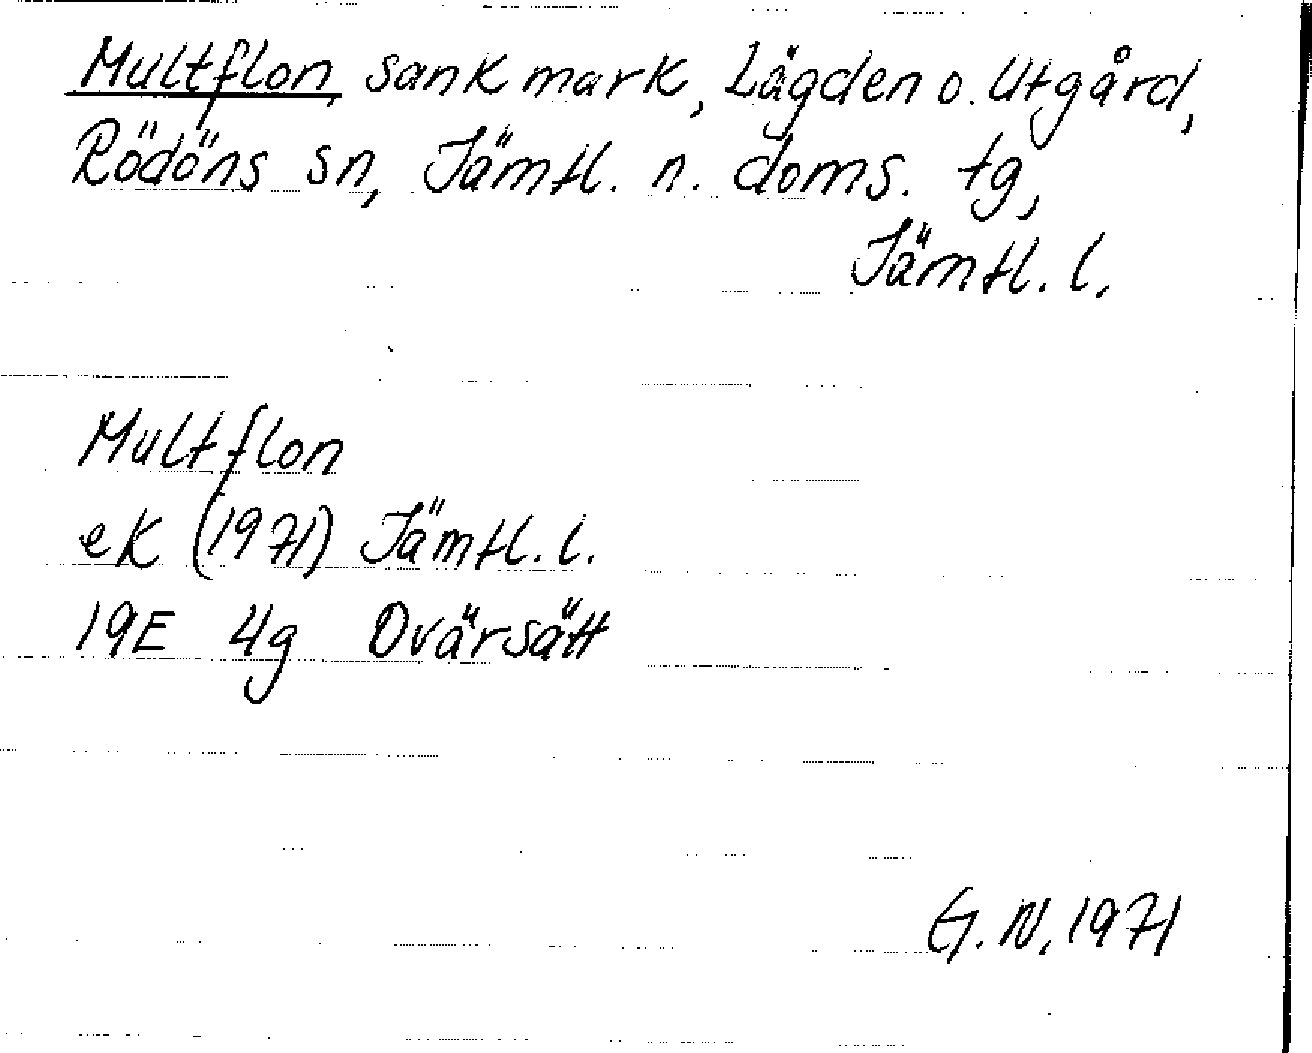 Multflon, sank mark, Lägden o. Utgård,
Rödöns sn, Jämtl. n. doms. tg,
Jämtl. l.
Multflon
ek (1971) Jämtl. l.
19E 4g Ovärsätt
G. N, 1971